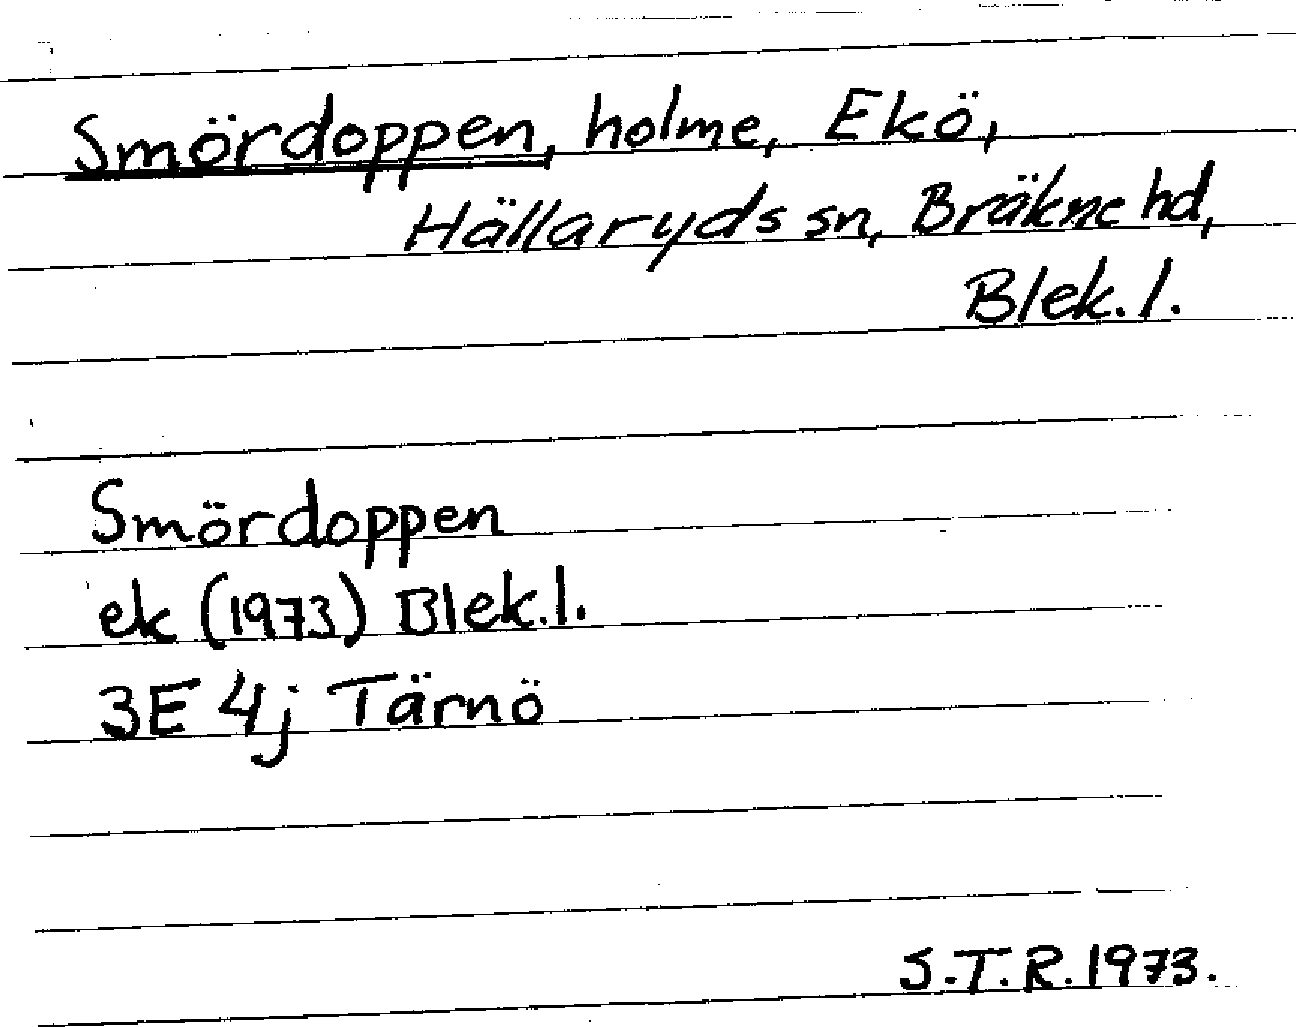 Smördoppen, holme, Ekö,
Hällaryds sn, Bräkne hd,
Blek. l.
Smördoppen
ek (1973) Blek. l.
3E 4j Tärnö
S.T.R. 1973.